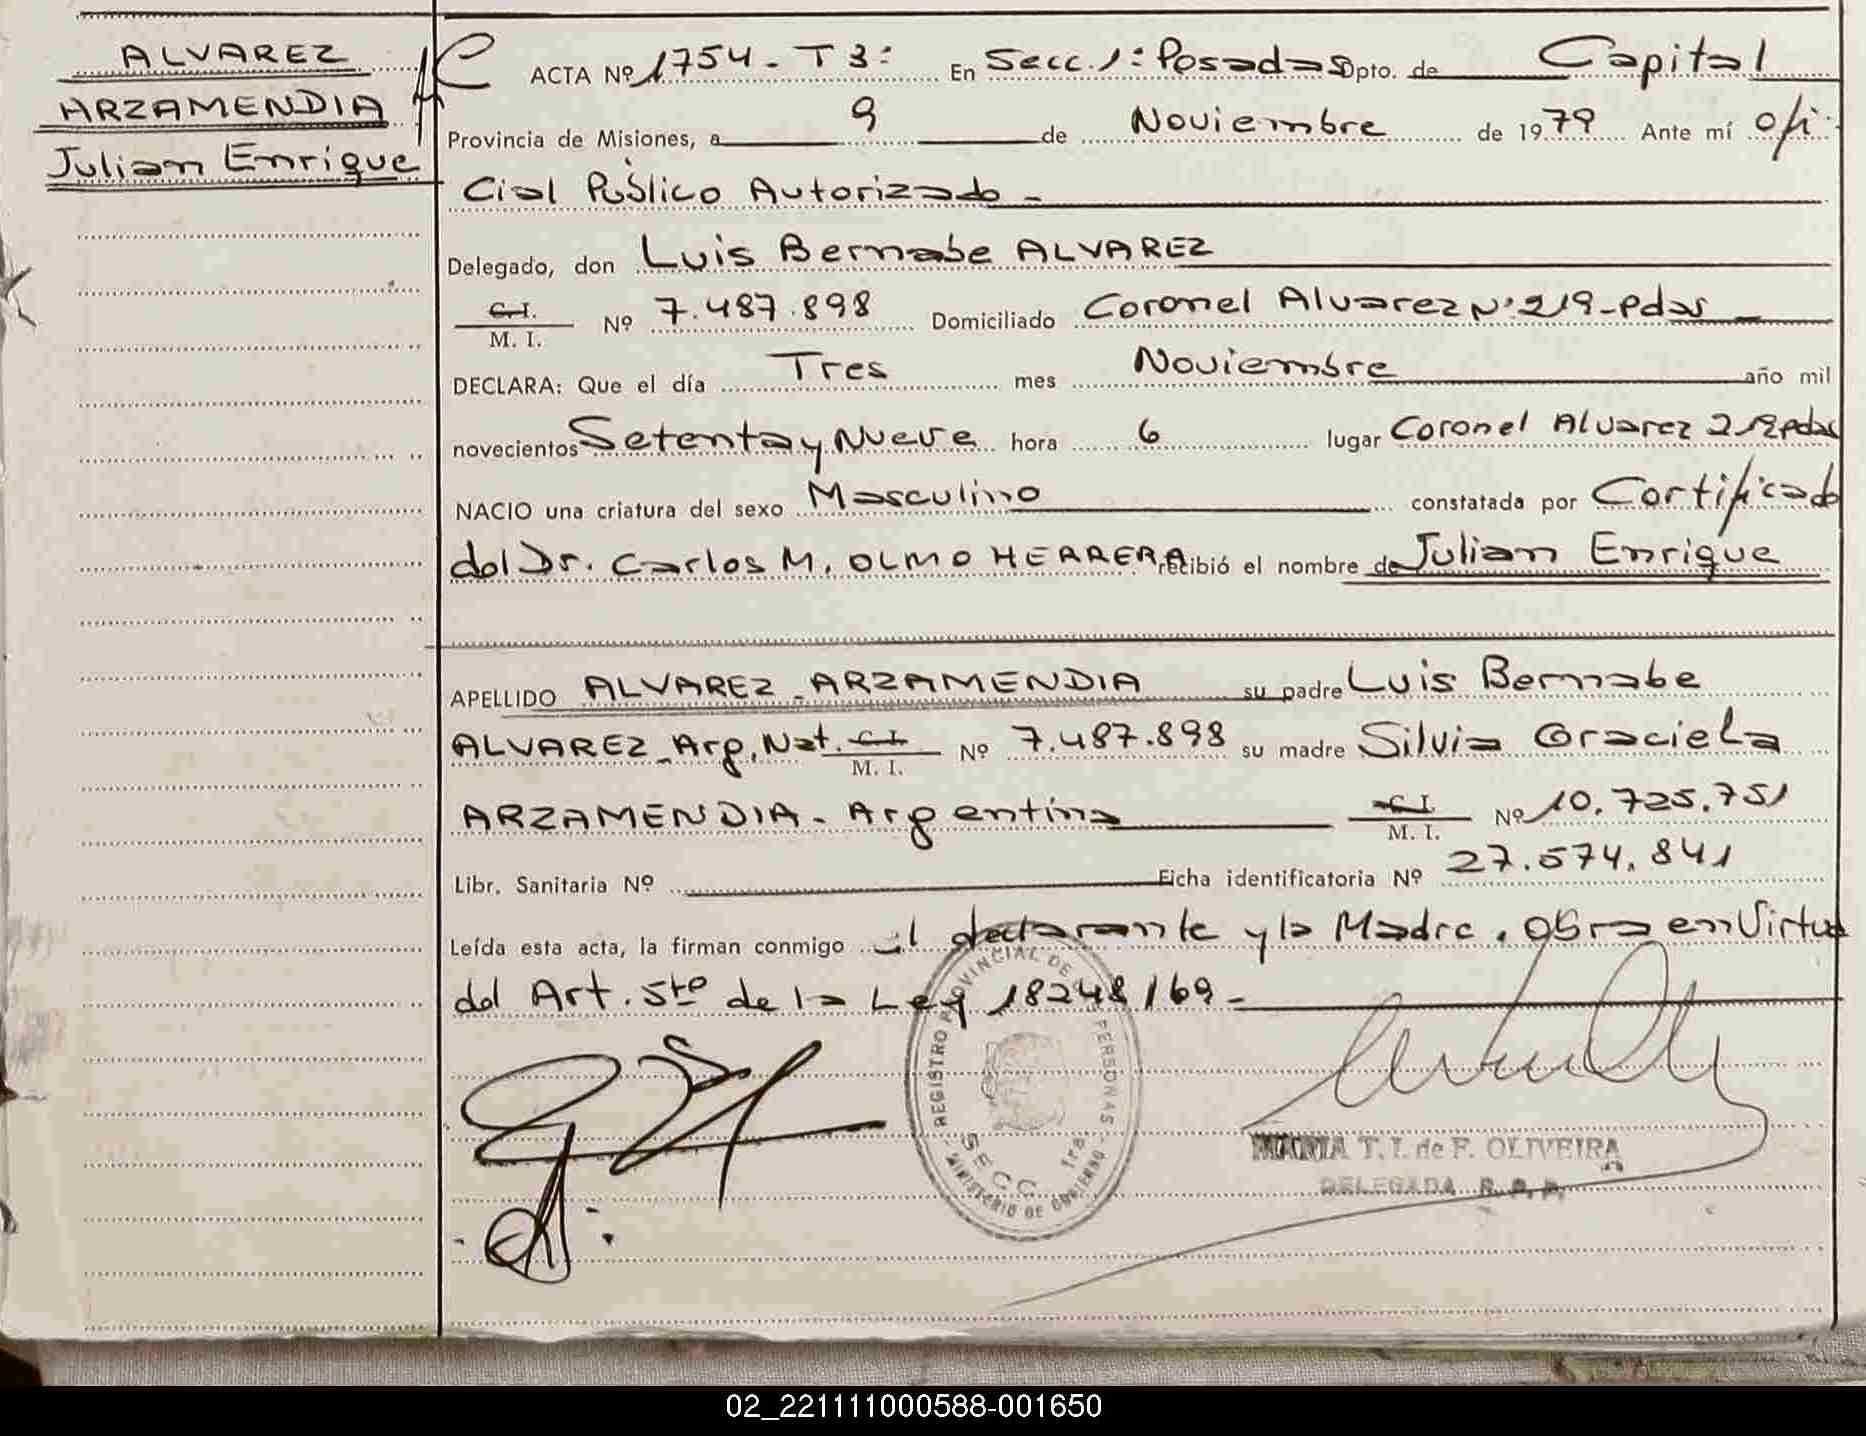 ALVAREZ
ARZAMENDIA
Julian Enrique
ACTA Nº 1754 - T 3: En Secc. 1ª Posadas Dpto. de Capital
Provincia de Misiones, a 9 de Noviembre de 1979 Ante mí ofi
cial Público Autorizado -
Delegado, don Luis Bernabe ALVAREZ
C. I.
M. I. Nº 7.487.898 Domiciliado Coronel Alvarez Nº 219 - Pdas -
DECLARA: Que el día Tres mes Noviembre año mil
novecientos Setenta y Nueve hora 6 lugar Coronel Alvarez 219 Pdas
NACIO una criatura del sexo Masculino constatada por Certificado
del Dr. Carlos M. OLMO HERRERA recibió el nombre de Julian Enrique
APELLIDO ALVAREZ - ARZAMENDIA su padre Luis Bernabe
ALVAREZ - Arg. Nat. C. I.
M. I. Nº 7.487.898 su madre Silvia Graciela
ARZAMENDIA - Argentina C. I.
M. I. Nº 10.725.751
Libr. Sanitaria Nº Ficha identificatoria Nº 27.574.841
Leída esta acta, la firman conmigo el declarante y la Madre. Obra en Virtud
del Art. 5to de la Ley 18248/69 -
REGISTRO PROVINCIAL DE PERSONAS - MINISTERIO DE GOBIERNO -
SECC. 1ra.
MARIA T. I. de F. OLIVEIRA
DELEGADA R. P. P.
02_221111000588-001650